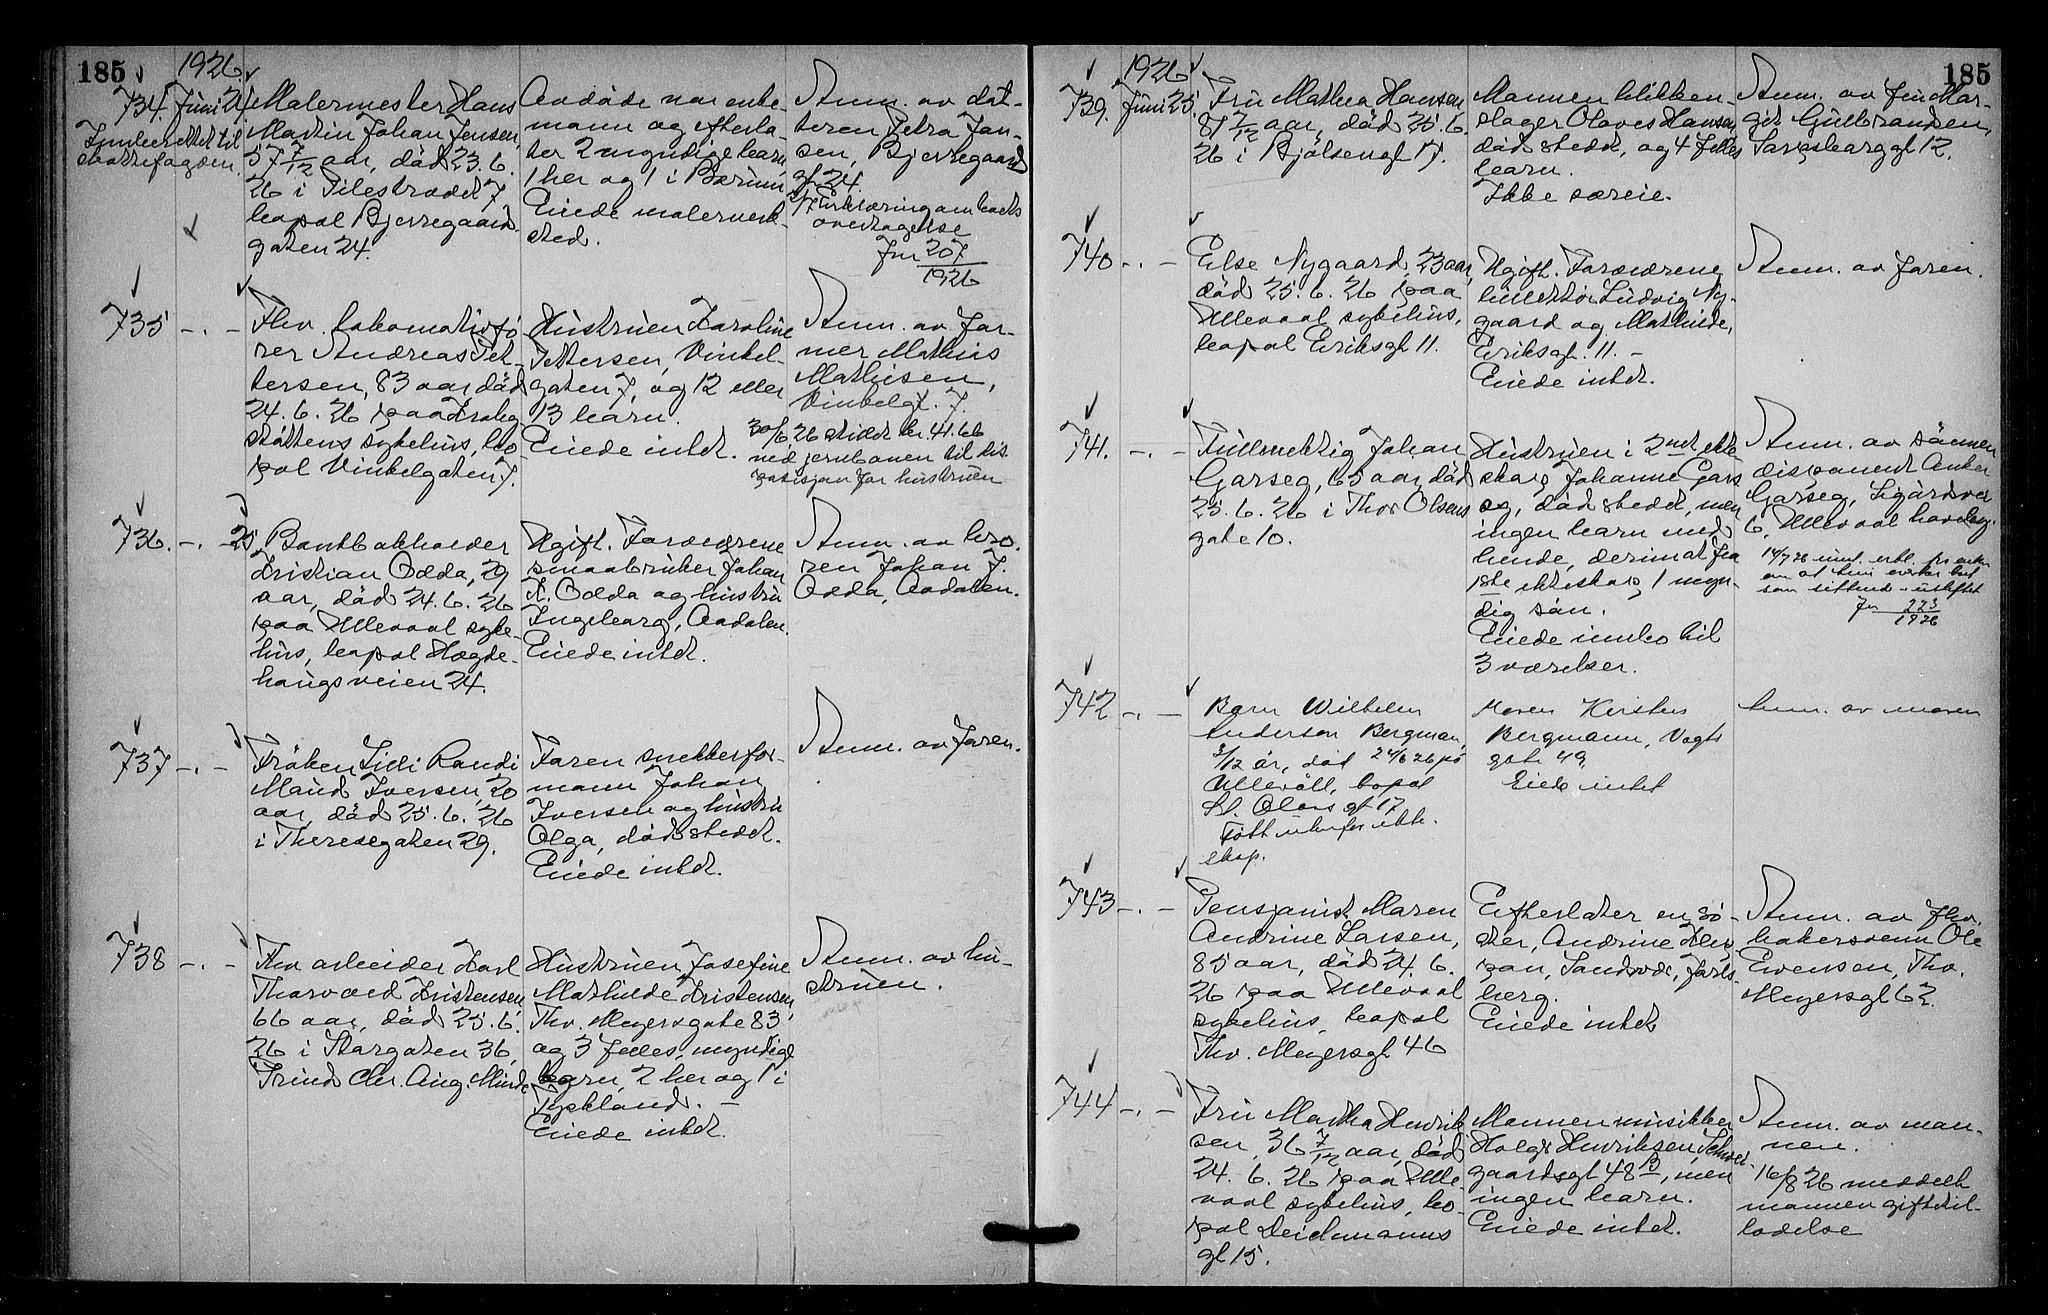 185
1926
734. Juni 24
Innberettet til
skattefogden.
Malermester Hans
Martin Johan Jensen,
57 7/12 aar, död 23.6.
26 i Pilestrædet 7,
bopæl Bjerregaards
gaten 24.
Avdöde var enke-
mann og efterla-
ter 2 myndige barn,
1 her og 1 i Bærum.
Eiede malerverk-
sted.
Anm. av dat-
teren Petra Jan-
sen, Bjerregaards
gt 24.
Erklæring om boets
overtagelse
Jnr 207
1926
735 -.-
Fhv. lokomotivfö-
rer Andreas Pet-
tersen, 83 aar, död
24.6.26 paa Krohg
stöttens sykehus, bo-
pæl Vinkelgaten 7.
Hustruen Karoline
Pettersen, Vinkel-
gaten 7, og 12 eller
13 barn.
Eiede intet.
Anm. av for-
mer Mathias
Mathisen,
Vinkelgt. 7.
30/6 26 stillet kr. 41.66
ved jernbanen til dis
posisjon for hustruen
736. -.- 25
Bankbokholder
Kristian Odda, 29
aar, död 24.6.26
paa Ullevaal syke-
hus, bopæl Hægde-
haugsveien 24.
Ugift. Forældrene
smaabruker Johan
K. Odda og hustru
Ingeborg, Aadalen.
Eiede intet.
Anm. av bro-
ren Johan J.
Odda, Aadalen.
737 -.-
Fröken Lilli Randi
Maud Iversen, 20
aar, död 25.6.26
i Theresegaten 29.
Faren snekkerfor-
mann Johan
Iversen og hustru
Olga, död stedet.
Eiede intet.
Anm. av faren.
738 -.-
Fhv arbeider Karl
Thorvald Kristensen
66 aar, död 25.6.
26 i Storgaten 36,
Hustruen Josefine
Mathilde Kristensen,
Thv. Meyersgate 83,
og 3 felles, myndige
barn, 2 her og 1 i
Tyskland. -
Eiede intet.
Anm. av hu-
struen.
185
1926
739. Juni 25.
Fru Mathea Hansen,
81 7/12 aar, död 25.6.
26 i Bjölsengt 17.
Mannen blikken-
slager Olaves Hansen
död stedet, og 4 felles
barn.
Ikke særeie.
Anm. av fru Mar-
git Gulbrandsen,
Sarpsborggt 12.
740 -.-
Else Nygaard, 23 aar,
död 25.6.26 paa
Ullevaal sykehus,
bopæl Eriksgt 11.
Ugift. Forældrene
Ludvig Ny-
gaard og Mathilde,
Eriksgt. 11. -
Eiede intet.
Anm. av faren.
741. -.-
Fullmektig Johan
Garseg, 65 aar, död
25.6.26 i Thor Olsens
gate 10.
Hustruen i 2net ekte
skap Johanne Gars
eg, död stedet, men
ingen barn med
hende, derimot fra
1ste ekteskap 1 myn-
dig sön.
Eiede innbo til
3 værelser.
Anm. av sönnen
disponent Anker
Garseg, Sigurdsvei
6, Ullevaal haveby.
som sittende i uskiftet
Jnr 223
1926
742 -.-
Barn Wilhelm
Anderson Bergman,
3/12 år, död 24/6 26 på
Ullevål, bopæl
St. Olavs gt 17
Född utenfor ekte-
skap.
Moren Kirsten
Bergmann, Vogts
gate 49.
Eiede intet
Anm. av moren
743 -.-
Pensjonist Maren
Andrine Larsen,
85 aar, död 24.6.
26 paa Ullevaal
sykehus, bopæl
Thv. Meyersgt 46
Efterlater en sö-
ster, Andrine
Jarls-
berg.
Eiede intet
Anm. av fhv.
bakersvenn Ole
Evensen, Thv.
Meyersgt 62.
744 -.-
Fru Martha Henrik
sen, 36 7/12 aar, död
24.6.26 paa Ulle-
vaal sykehus, bo-
pæl Deichmanns
gt 15.
Mannen musikker
Holger Henriksen, Schwei-
gaardsgt 48 B, men
ingen barn.
Eiede intet.
Anm. av man-
nen.
16/8 26 meddelt
mannen giftetil-
ladelse